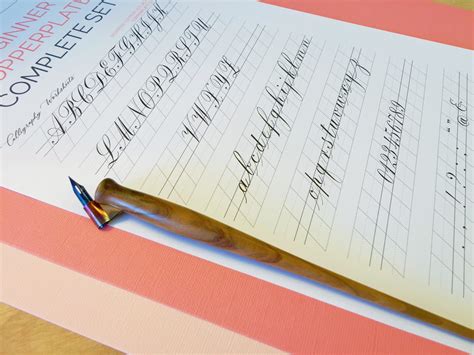 GINNER
PPERPLATE
COMPLETE SET
Calligraphy Worksheets
ABCDEFGHIJK
LMNOPQRSTU
VWXYZ
abcdefghijklmn
opqrstuvwxyz
0123456789